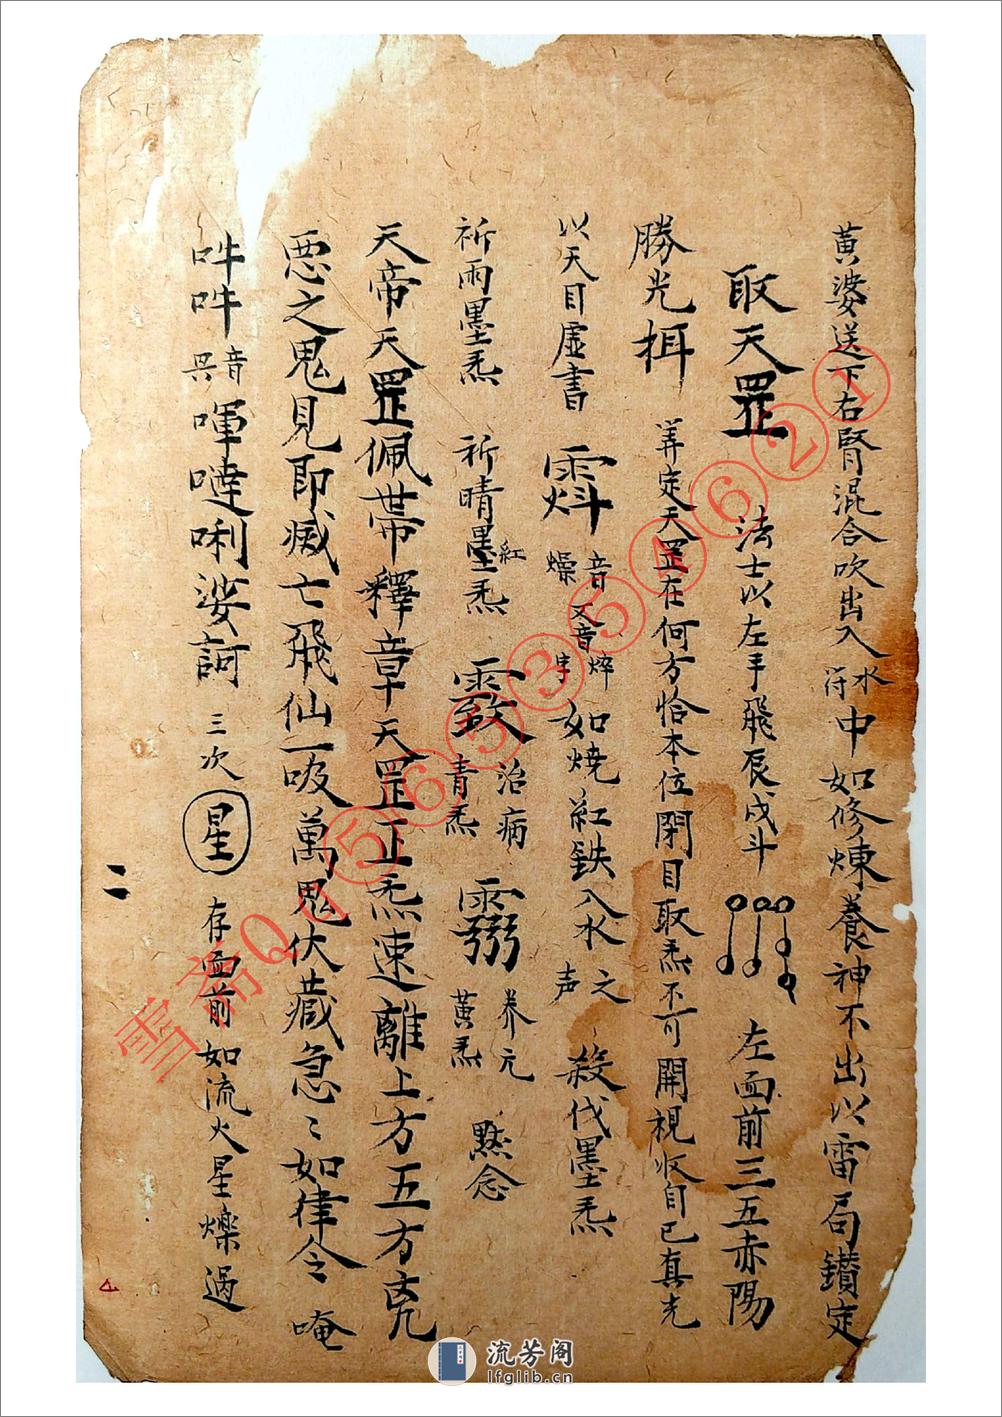 黄婆送下右腎混合吹出入水符中如修煉養神不出以雷局鑚定
取天罡 法士以左手飛辰戌斗 左面前三五赤陽
勝光 定天罡在何方恰本位閉目取炁不可開視收自己真光
以天目虛書 音燥又音焠字如燒紅鉄入水之声 殺伐墨炁
祈雨墨炁 祈晴墨紅炁 治病青炁 养元黄炁 默念
天帝天罡佩帶釋章天罡正炁速離上方五方凶
惡之鬼見即滅亡飛仙一吸萬鬼伏藏急〻如律令 唵
吽吽 音 㗲噠唎娑訶 三次 星 存面前如流火星爍過
二
雪斋Q1565354621
流芳阁
lfglib.cn